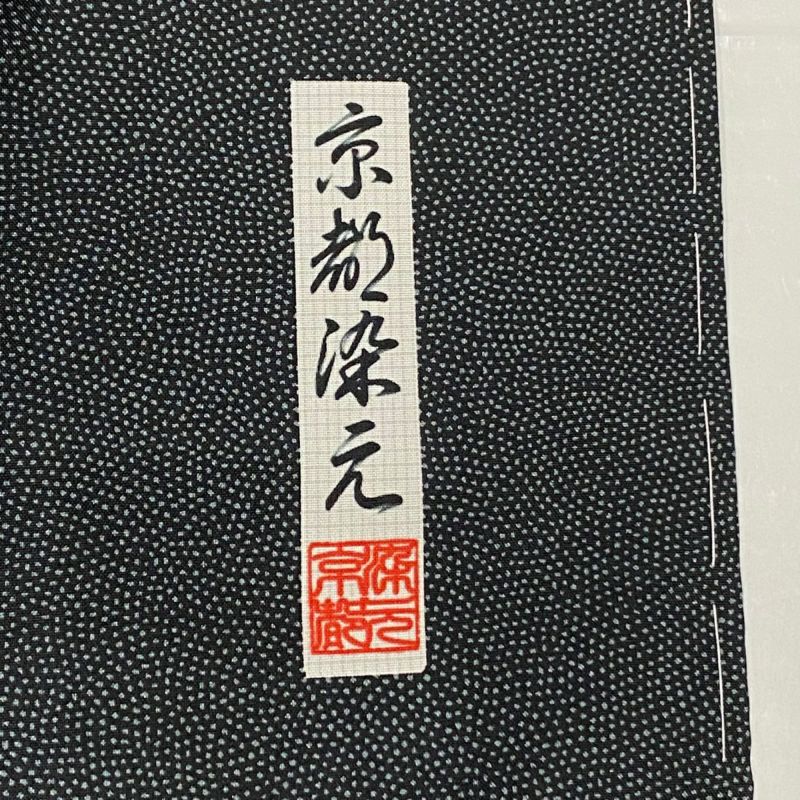 京都染元
染元京都